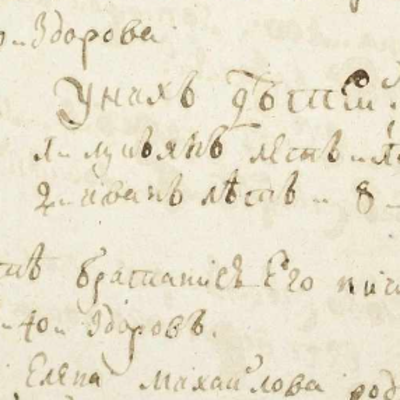 Здорова
Унихъ дѣтей
1 лукьянъ летъ
2 иванъ лѣтъ 8
братаниеъ Его
40 здоровъ.
Елена махаилова род